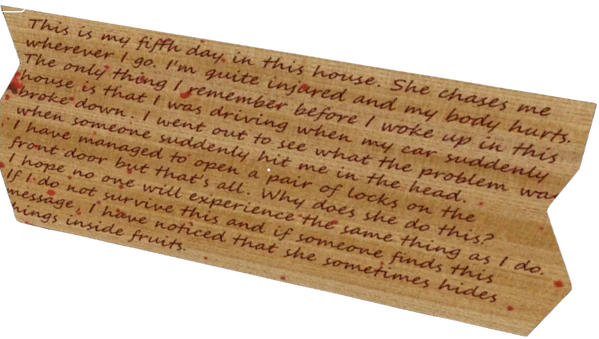 This is my fifth day in this house. She chases me
wherever I go. I'm quite injured and my body hurts.
The only thing I remember before I woke up in this
house is that I was driving when my car suddenly
broke down. I went out to see what the problem wa
when someone suddenly hit me in the head.
I have managed to open a pair of locks on the
front door but that's all. Why does she do this?
I hope no one will experience the same thing as I do.
If I do not survive this and if someone finds this
message, I have noticed that she sometimes hides
hings inside fruits.